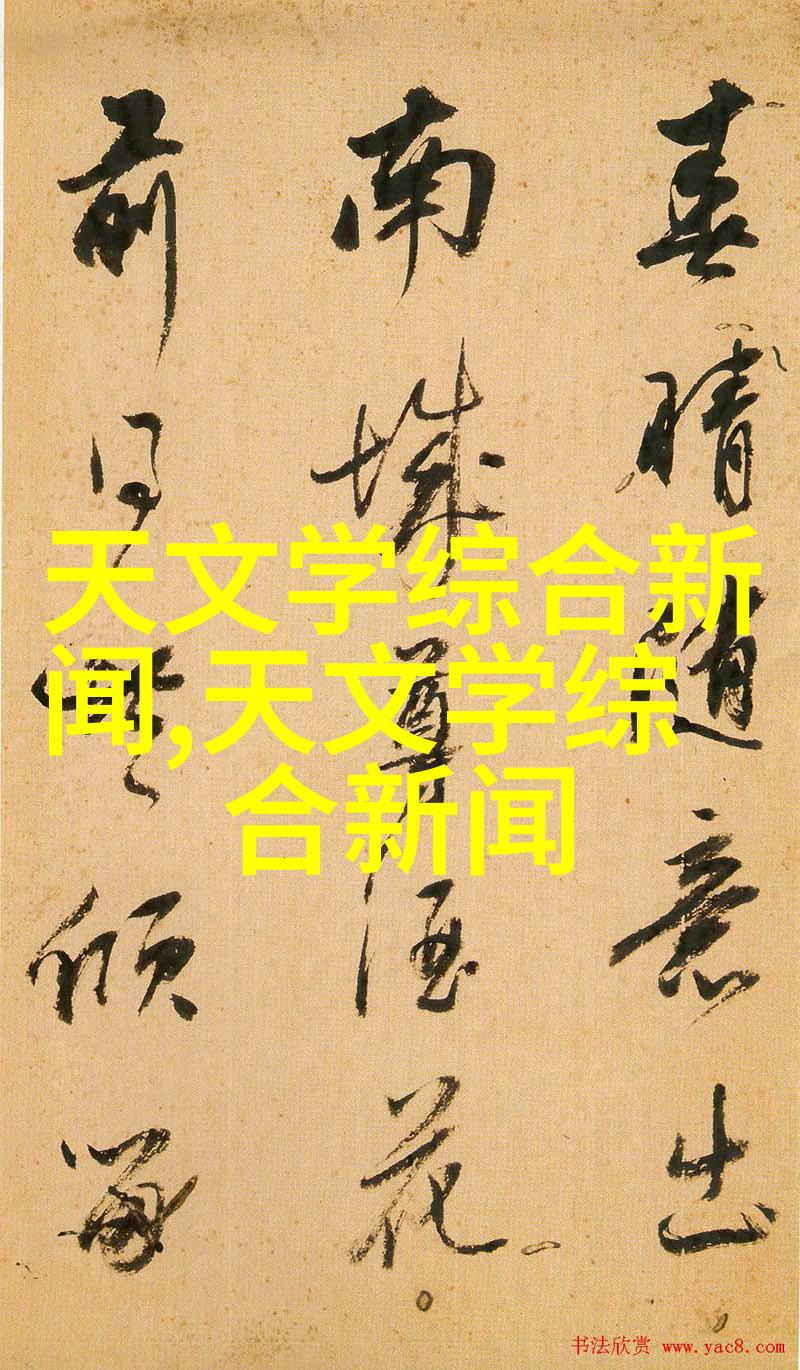 春晴隨意出
南城尊酒花
前同
天文学综合新
闻,天文学综
合新闻
书法欣赏 www.yac8.com